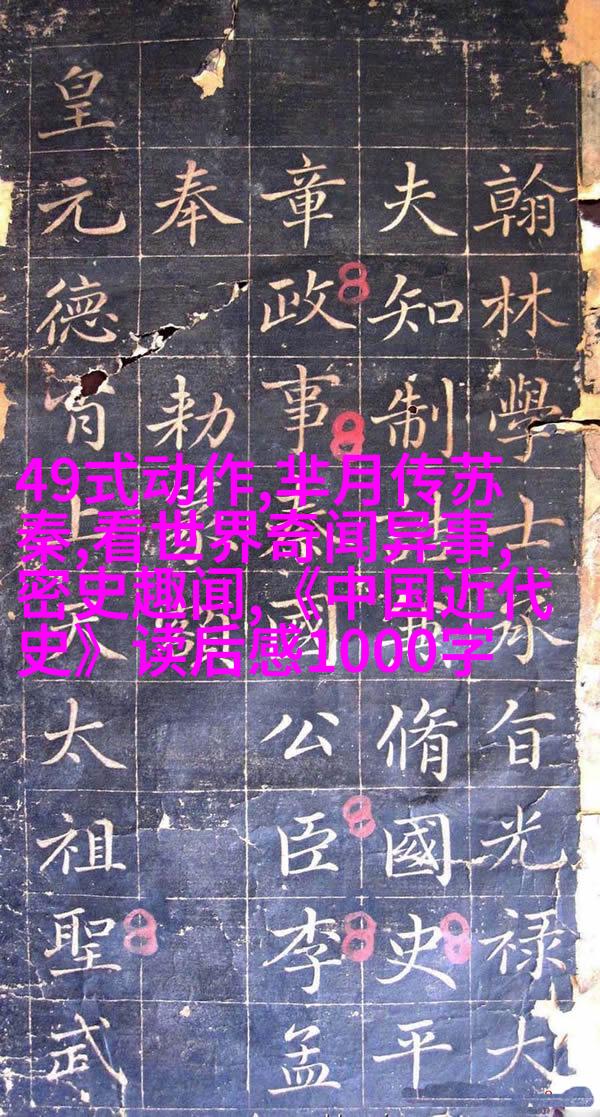 49式动作,芈月传苏
秦,看世界奇闻异事,
密史趣闻,《中国近代
史》读后感1000字
翰林學士承旨光禄大
夫知制脩國史平
章政事國公臣李孟
奉勑
皇元德上天太祖聖武
8
8
8
8
8
8